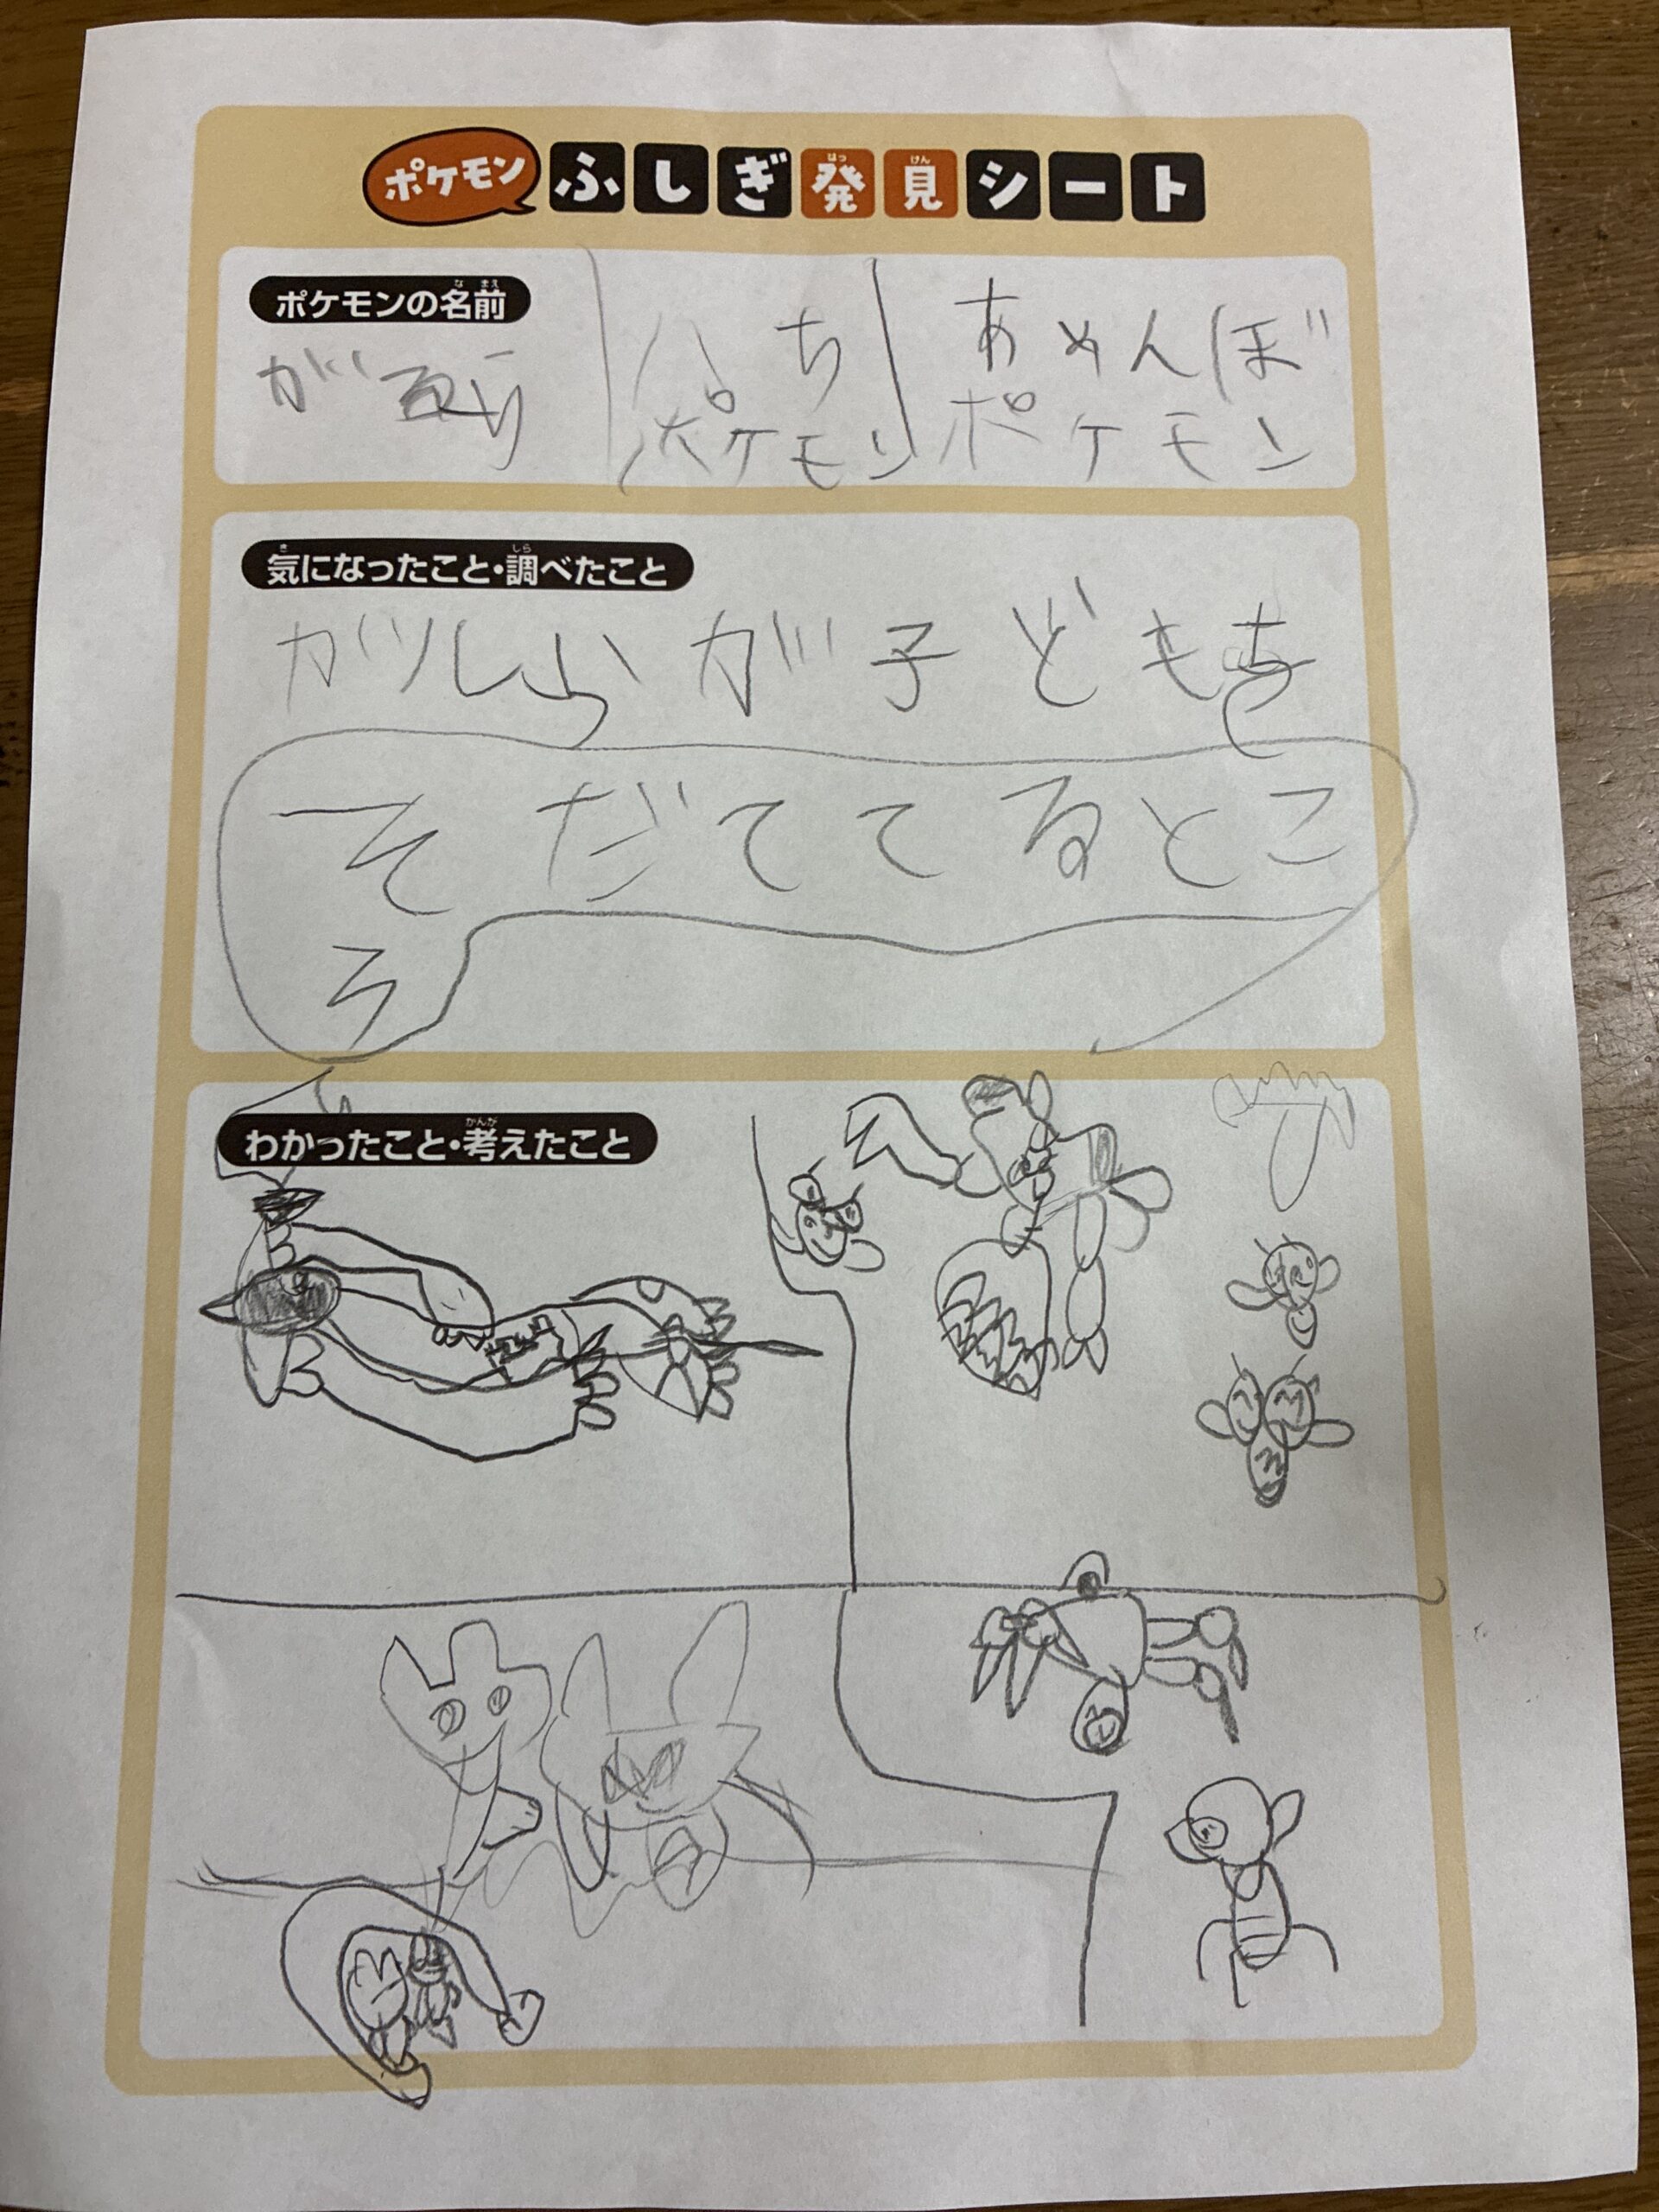 ポケモンふしぎ発見シート
ポケモンの名前
はち
ポケモン
あめんぼ
ポケモン
気になったこと・調べたこと
が子どもを
そだててるとこ
ろ
わかったこと・考えたこと